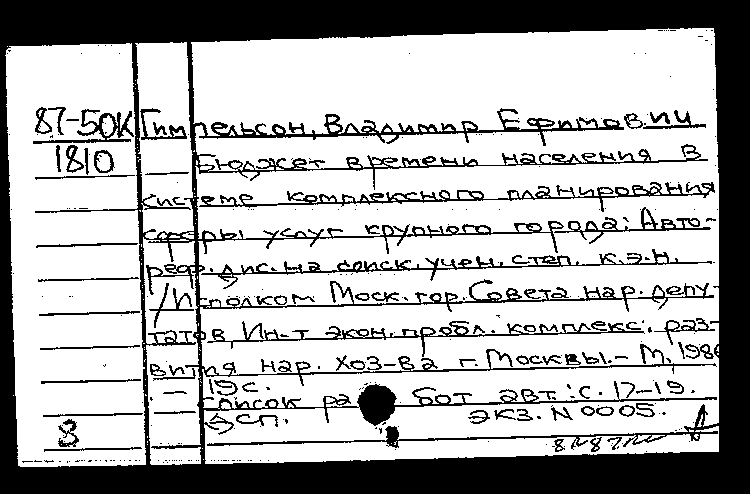 87-50К Гимпельсон, Владимир Ефимович
1810 Бюджет времени населения в
системе комплексного планирования
сферы услуг крупного города: Авто-
реф. дис. на соиск. учен. степ. к.э.н.
/Исполком Моск. гор. Совета нар. депу-
татов, Ин-т экон. пробл. комплекс. раз-
вития нар. хоз-ва г. Москвы.- М, 1986
- 19с.
Список работ авт.: с. 17-19.
ДСП. экз. N 0005.